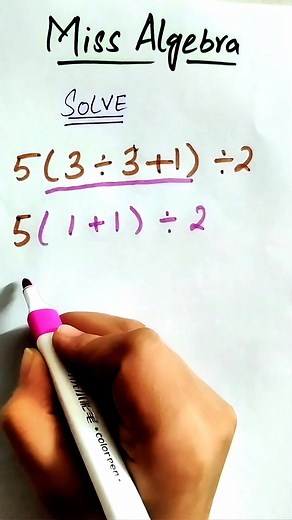 Miss Algebra
SOLVE
5(3÷3+1)÷2
5(1+1)÷2
•colorpen•